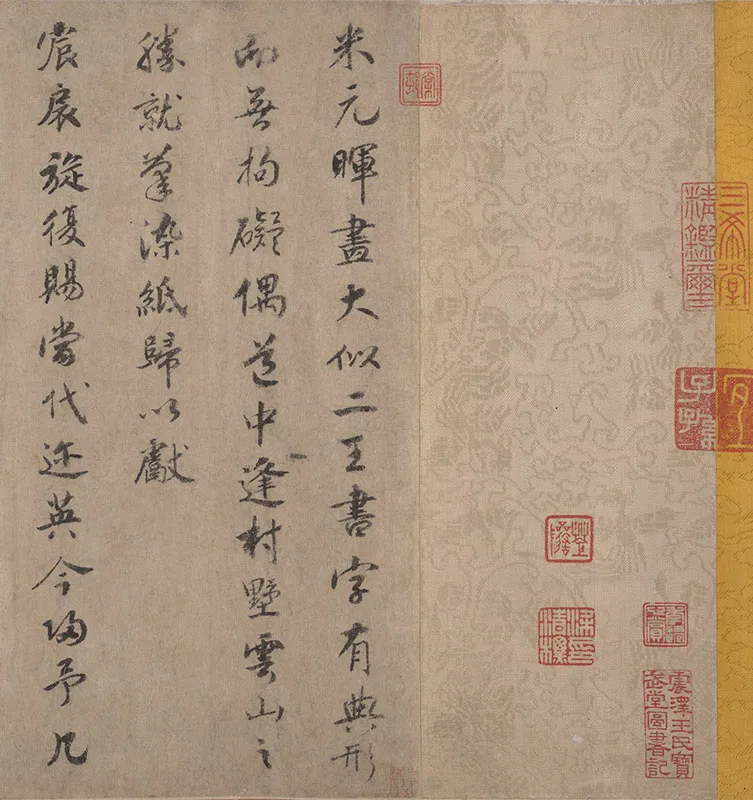 三希堂
精鑑璽
宜
子孫
震澤王氏寶
堂圖書記
棠邨
米元暉畫大似二王書字有典形
而無拘礙偶道中逢村墅雲山之
勝就筆染紙歸以獻
宸扆旋復賜當代迩英今歸予几